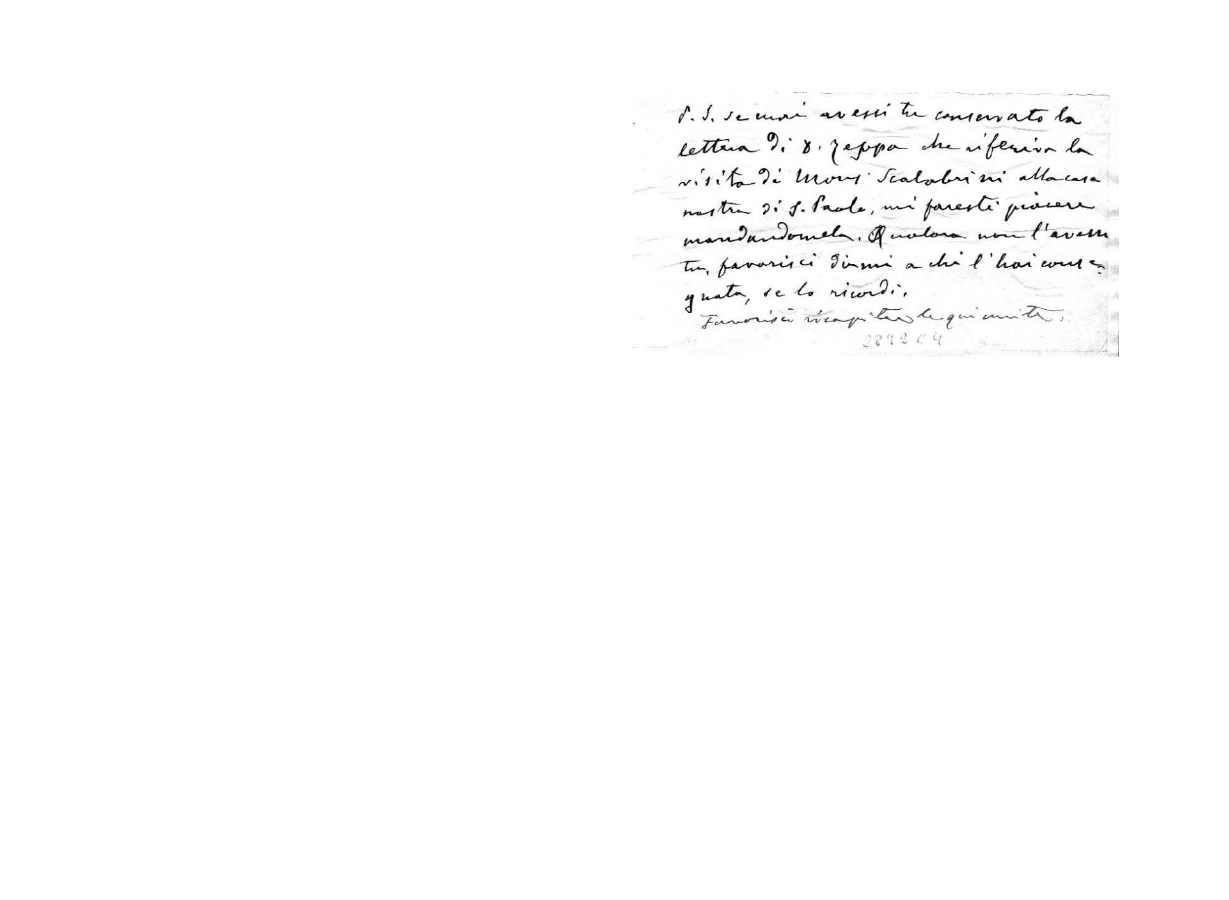 P. S. se mai avessi tu conservato la
lettera di D. Zeppa che riferiva la
visita di Mons. Scalabrini alla casa
nostra di S. Paolo, mi faresti piacere
mandandomela. Qualora non l'avessi
tu, favorisci dirmi a chi l'hai conse-
gnata, se lo ricordi.
Favorisci ricapitare le qui unite.
2892 C 4